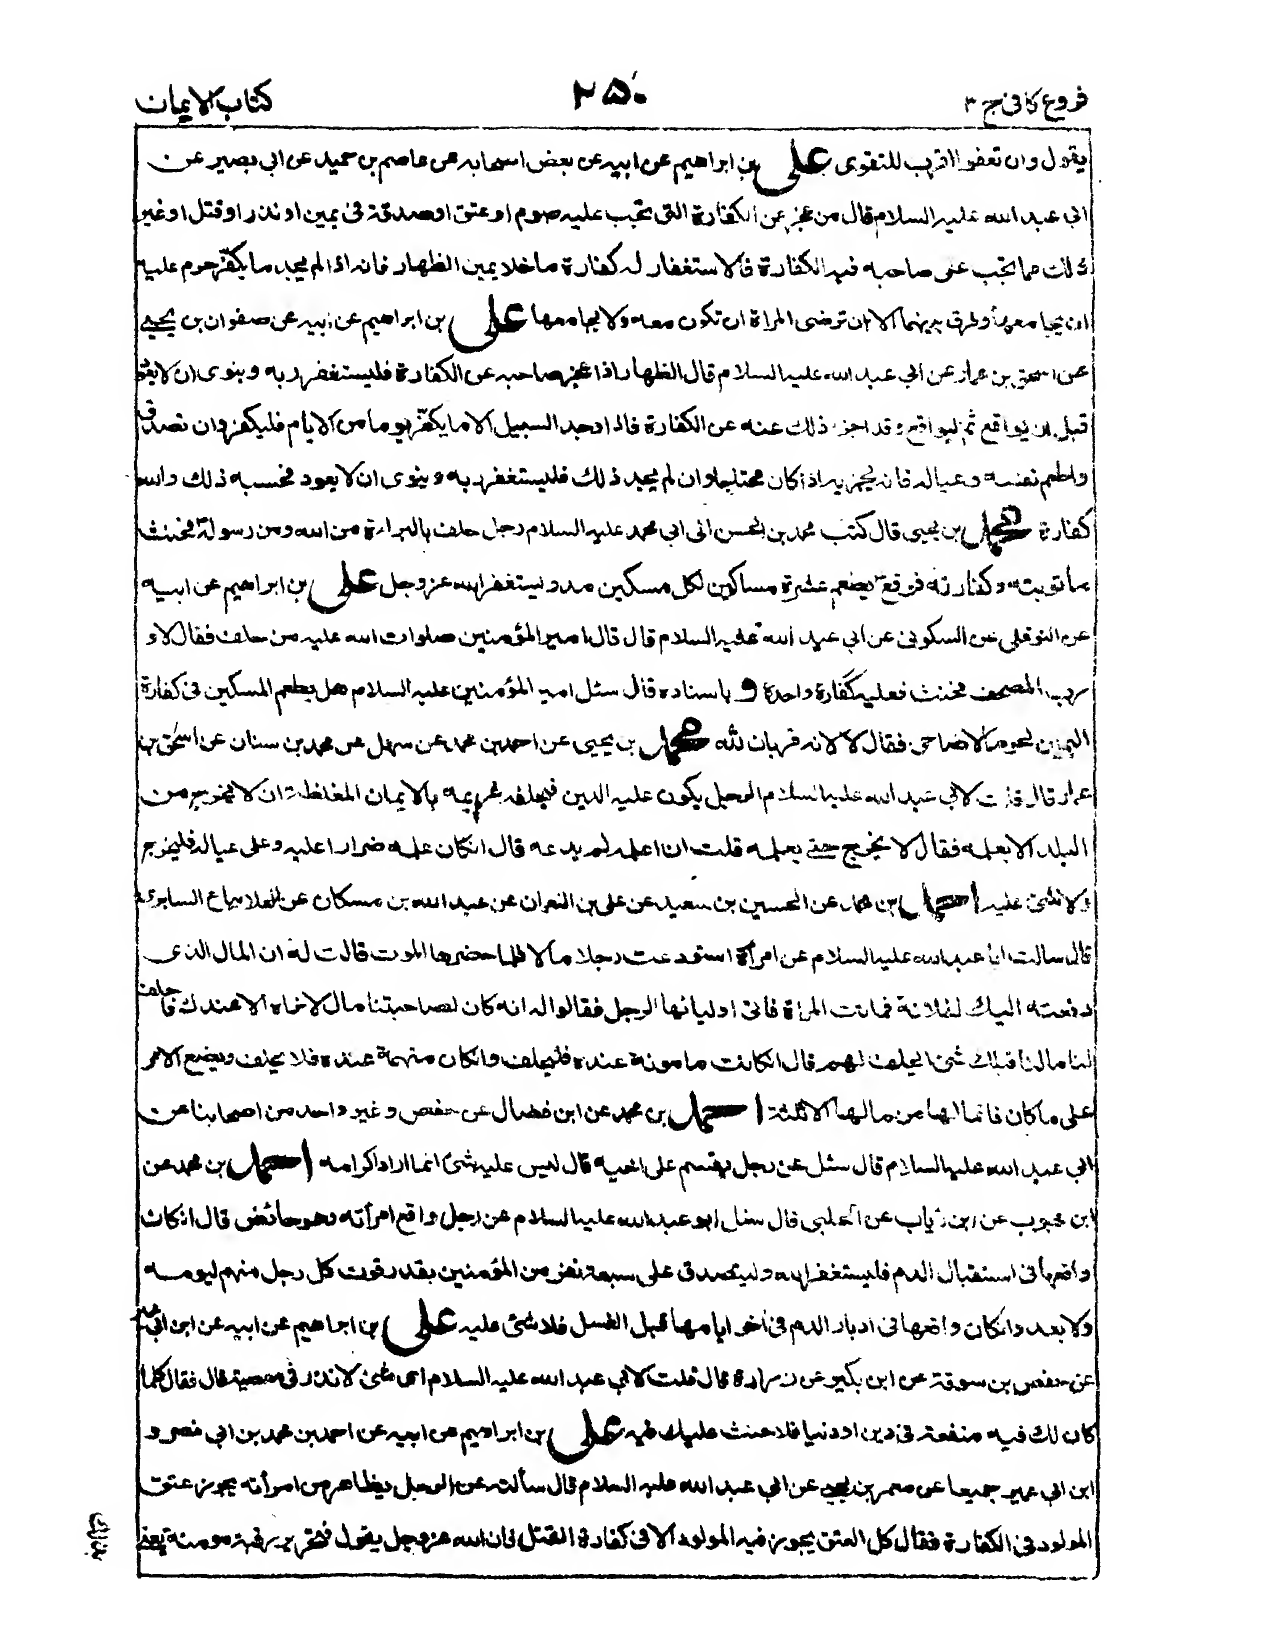 فروع كافى ج ٣
٢٥٠
كتاب الايمان
يقول وان تعفوا اقرب للتقوى على بن ابراهيم عن ابيه عن بعض اصحابه عن عاصم بن حميد عن ابى بصير عن
ابى عبد الله عليه السلام قال من عجز عن الكفارة التى تجب عليه صوم او عتق او صدقة فى يمين او نذر او قتل او غير
ذلك مما يجب على صاحبه فيه الكفارة فالاستغفار له كفارة ما خلا يمين الظهار فانه اذا لم يجد ما يكفّر حرم عليه
ان يجامعها وفرق بينهما الا ان ترضى المراة ان تكون معه ولا يجامعها على بن ابراهيم عن ابيه عن صفوان بن يحيى
عن اسحق بن عمار عن ابى عبد الله عليه السلام قال الظهار اذا عجز صاحبه عن الكفارة فليستغفر ربه وينوى ان لا يعود
قبل ان يواقع ثم ليواقع وقد اجزء ذلك عنه عن الكفارة فاذا وجد السبيل الا ما يكفّر يوما من الايام فليكفر وان تصدق
واطعم نفسه وعياله فانه يجزيه اذا كان محتاجا وان لم يجد ذلك فليستغفر ربه وينوى ان لا يعود فحسبه ذلك والله
كفارة محمد بن يحيى قال كتب محمد بن الحسن الى ابى محمد عليه السلام رجل حلف بالبراءة من الله ومن رسوله فحنث
ما توبته وكفارته فوقع ع يطعم عشرة مساكين لكل مسكين مد وليستغفر الله عز وجل على بن ابراهيم عن ابيه
عن النوفلى عن السكونى عن ابى عبد الله عليه السلام قال قال امير المؤمنين صلوات الله عليه من حلف فقال لا و
رب المصحف فحنث فعليه كفارة واحدة و باسناده قال سئل امير المؤمنين عليه السلام هل يطعم المسكين فى كفارة
اليمين لحوم الاضاحى فقال لا لانه قربان لله محمد بن يحيى عن احمد بن محمد عن سهل عن محمد بن سنان عن اسحق بن
عمار قال قلت لابى عبد الله عليه السلام الرجل يكون عليه الدين فيحلفه غريمه بالايمان المغلظة ان لا يخرج من
البلد الا بعلمه فقال لا يخرج حتى يعلمه قلت ان اعلمه لم يدعه قال ان كان علمه ضرارا عليه وعلى عياله فليخرج
ولا شئ عليه احمد بن محمد عن الحسين بن سعيد عن على بن النعمان عن عبد الله بن مسكان عن العلا بياع السابرى
قال سالت ابا عبد الله عليه السلام عن امراة استودعت رجلا مالا فلما حضرها الموت قالت له ان المال الذى
دفعته اليك لفلانة فماتت المراة فاتى اولياءها الرجل فقالوا له انه كان لصاحبتنا مال لا نراه الا عندك فاحلف
لنا ما لنا قبلك شئ ايحلف لهم قال ان كانت مامونة عنده فليحلف وان كان متهمة عنده فلا يحلف ويضع الامر
على ما كان فانما لها من مالها الا ثلثه احمد بن محمد عن ابن فضال عن حفص وغير واحد من اصحابنا عن
ابى عبد الله عليه السلام قال سئل عن رجل يقسم على اخيه قال ليس عليه شئ انما اراد اكرامه احمد بن محمد عن
ابن محبوب عن ابن رئاب عن الحلبى قال سئل ابو عبد الله عليه السلام عن رجل واقع امرأته وهو حائض قال ان كان
واقعها فى استقبال الدم فليستغفر الله وليتصدق على سبعة نفر من المؤمنين بقدر قوت كل رجل منهم ليومه
ولا يعد وان كان واقعها فى ادبار الدم فى آخر ايامها قبل الغسل فلا شئ عليه على بن ابراهيم عن ابيه عن ابن ابى عمير
عن حفص بن سوقة عن ابن بكير عن زرارة قال قلت لابى عبد الله عليه السلام اى شئ لا نذر فى معصية قال فقال كلما
كان لك فيه منفعة فى دين او دنيا فلا حنث عليك فيه على بن ابراهيم عن ابيه عن احمد بن محمد بن ابى نصر و
ابن ابى عمير جميعا عن معمر بن يحيى عن ابى عبد الله عليه السلام قال سألته عن الرجل يظاهر من امرأته يجوز عتق
المولود فى الكفارة فقال كل العتق يجوز فيه المولود الا فى كفارة القتل فان الله عز وجل يقول فتحرير رقبة مومنة يعنى